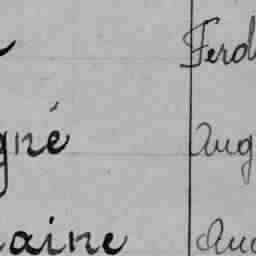 Ferd
gné Aug
aine Aug